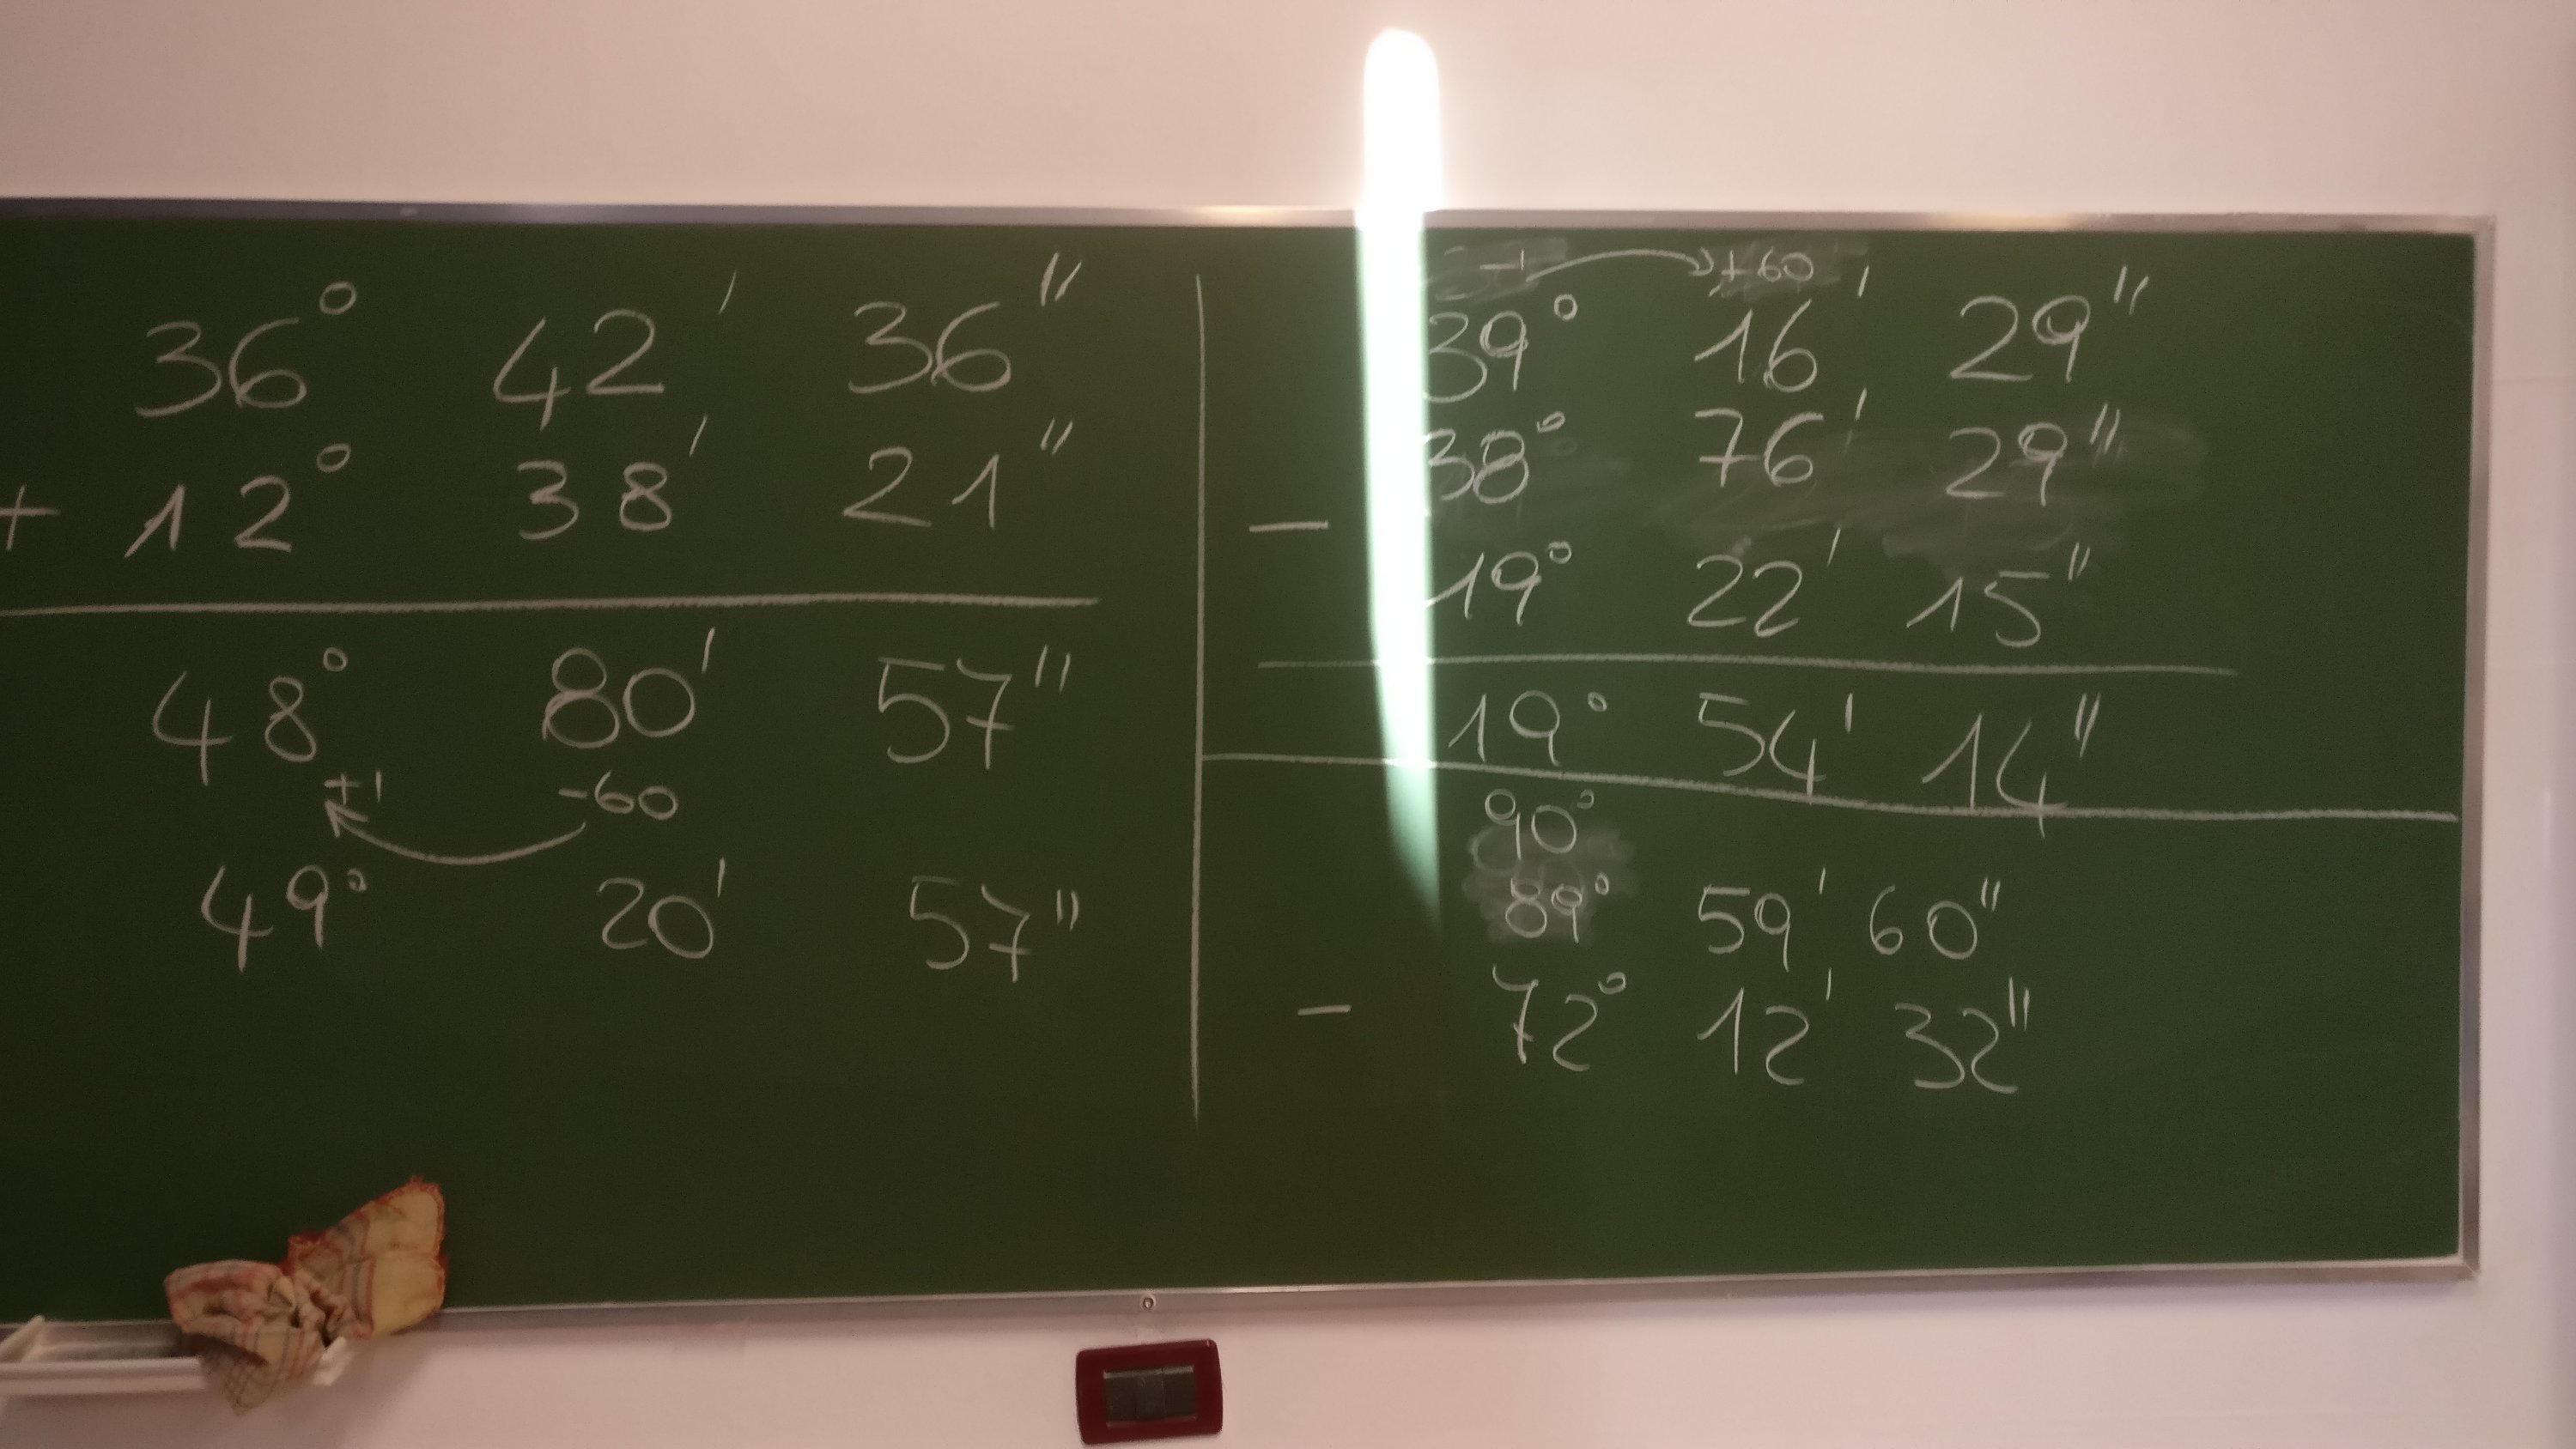 36° 42' 36"
+ 12° 38' 21"
48° 80' 57"
+1 -60
49° 20' 57"
-1 +60
39° 16' 29"
38° 76' 29"
- 19° 22' 15"
19° 54' 14"
90°
89° 59' 60"
- 72° 12' 32"